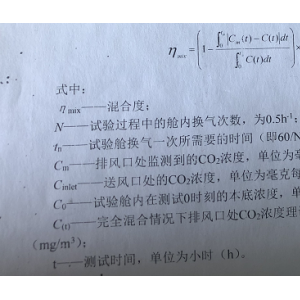 η mix = (1 - ∫₀^tn |Cm(t)-C(t)|dt / ∫₀^tn C(t)dt) ×
式中:
η mix——混合度;
N——试验过程中的舱内换气次数,为0.5h⁻¹;
tn——试验舱换气一次所需要的时间(即60/N
Cm——排风口处监测到的CO₂浓度,单位为毫
Cinlet——送风口处的CO₂浓度,单位为毫克每
C₀——试验舱内在测试0时刻的本底浓度,单
C(t)——完全混合情况下排风口处CO₂浓度理
(mg/m³);
t——测试时间,单位为小时(h)。